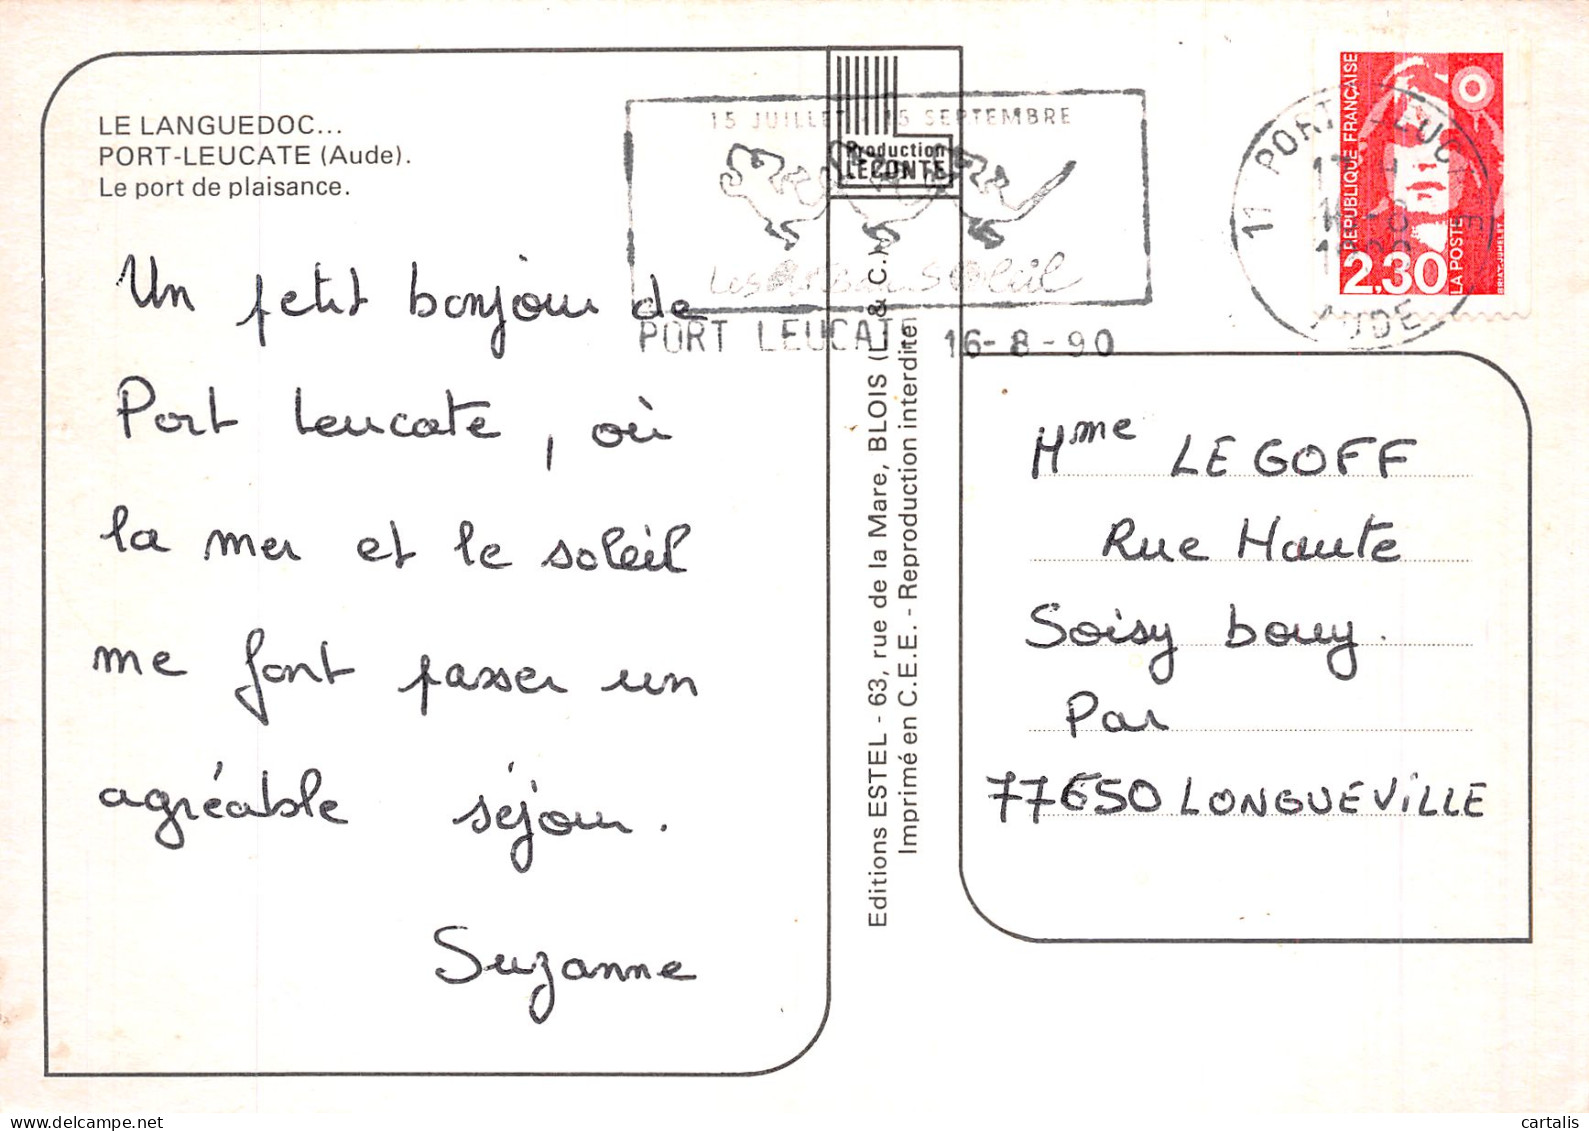 LE LANGUEDOC...
PORT-LEUCATE (Aude).
Le port de plaisance.
Un petit bonjour de
Port Leucate, où
la mer et le soleil
me font passer un
agréable séjour.
Suzanne
Production
LECONTE
15 JUILLET 15 SEPTEMBRE
Soleil
PORT LEUCATE 16-8-90
Editions ESTEL - 63, rue de la Mare, BLOIS (L. & C.)
Imprimé en C.E.E. - Reproduction interdite
11 PORT LEUCATE
AUDE
REPUBLIQUE FRANÇAISE
2,30
LA POSTE
BRIAT-JUMELET
Mme LEGOFF
Rue Haute
Soisy bouy.
Par
77650 LONGUEViLLE
cartalis